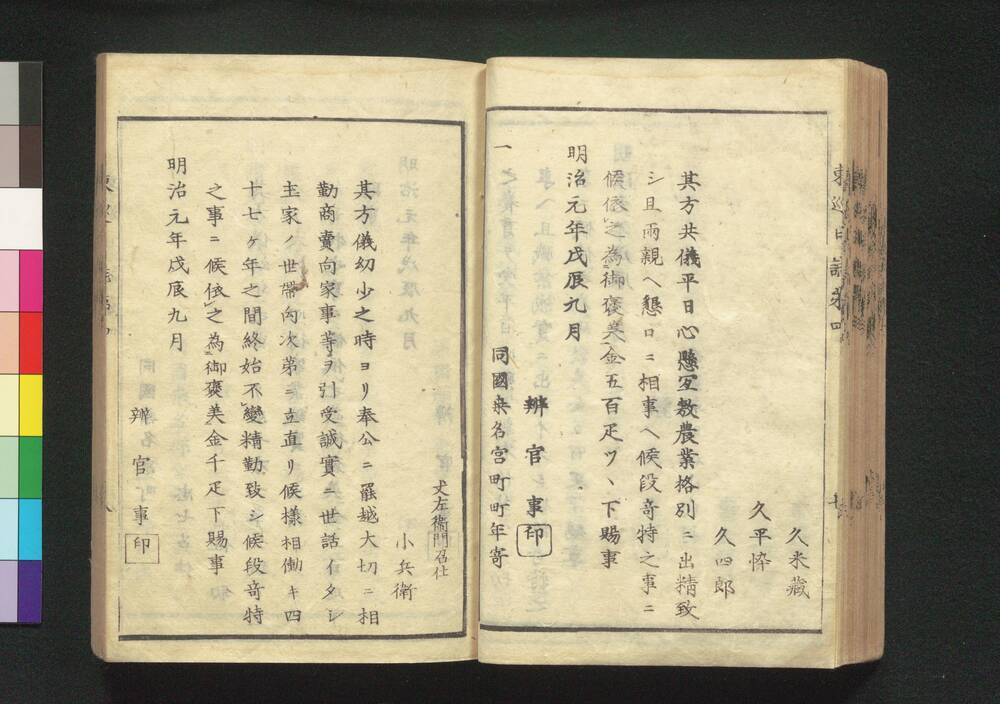 久米藏
久平悴
久四郎
其方共儀平日心懸宜敷農業格別ニ出精致
シ且両親ヘ懇ロニ相事ヘ候段奇特之事ニ
候依之為御褒美金五百疋ツヽ下賜事
明治元年戊辰九月
辨官事印
一
同國桒名宮町町年寄
丈左衞門召仕
小兵衛
其方儀幼少之時ヨリ奉公ニ罷越大切ニ相
勤商賣向家事等ヲ引受誠實ニ世話イタシ
主家ノ世帶向次第ニ立直リ候様相働キ四
十七ヶ年之間終始不變精勤致シ候段奇特
之事ニ候依之為御褒美金千疋下賜事
明治元年戊辰九月
辨官事印
東巡日誌第四